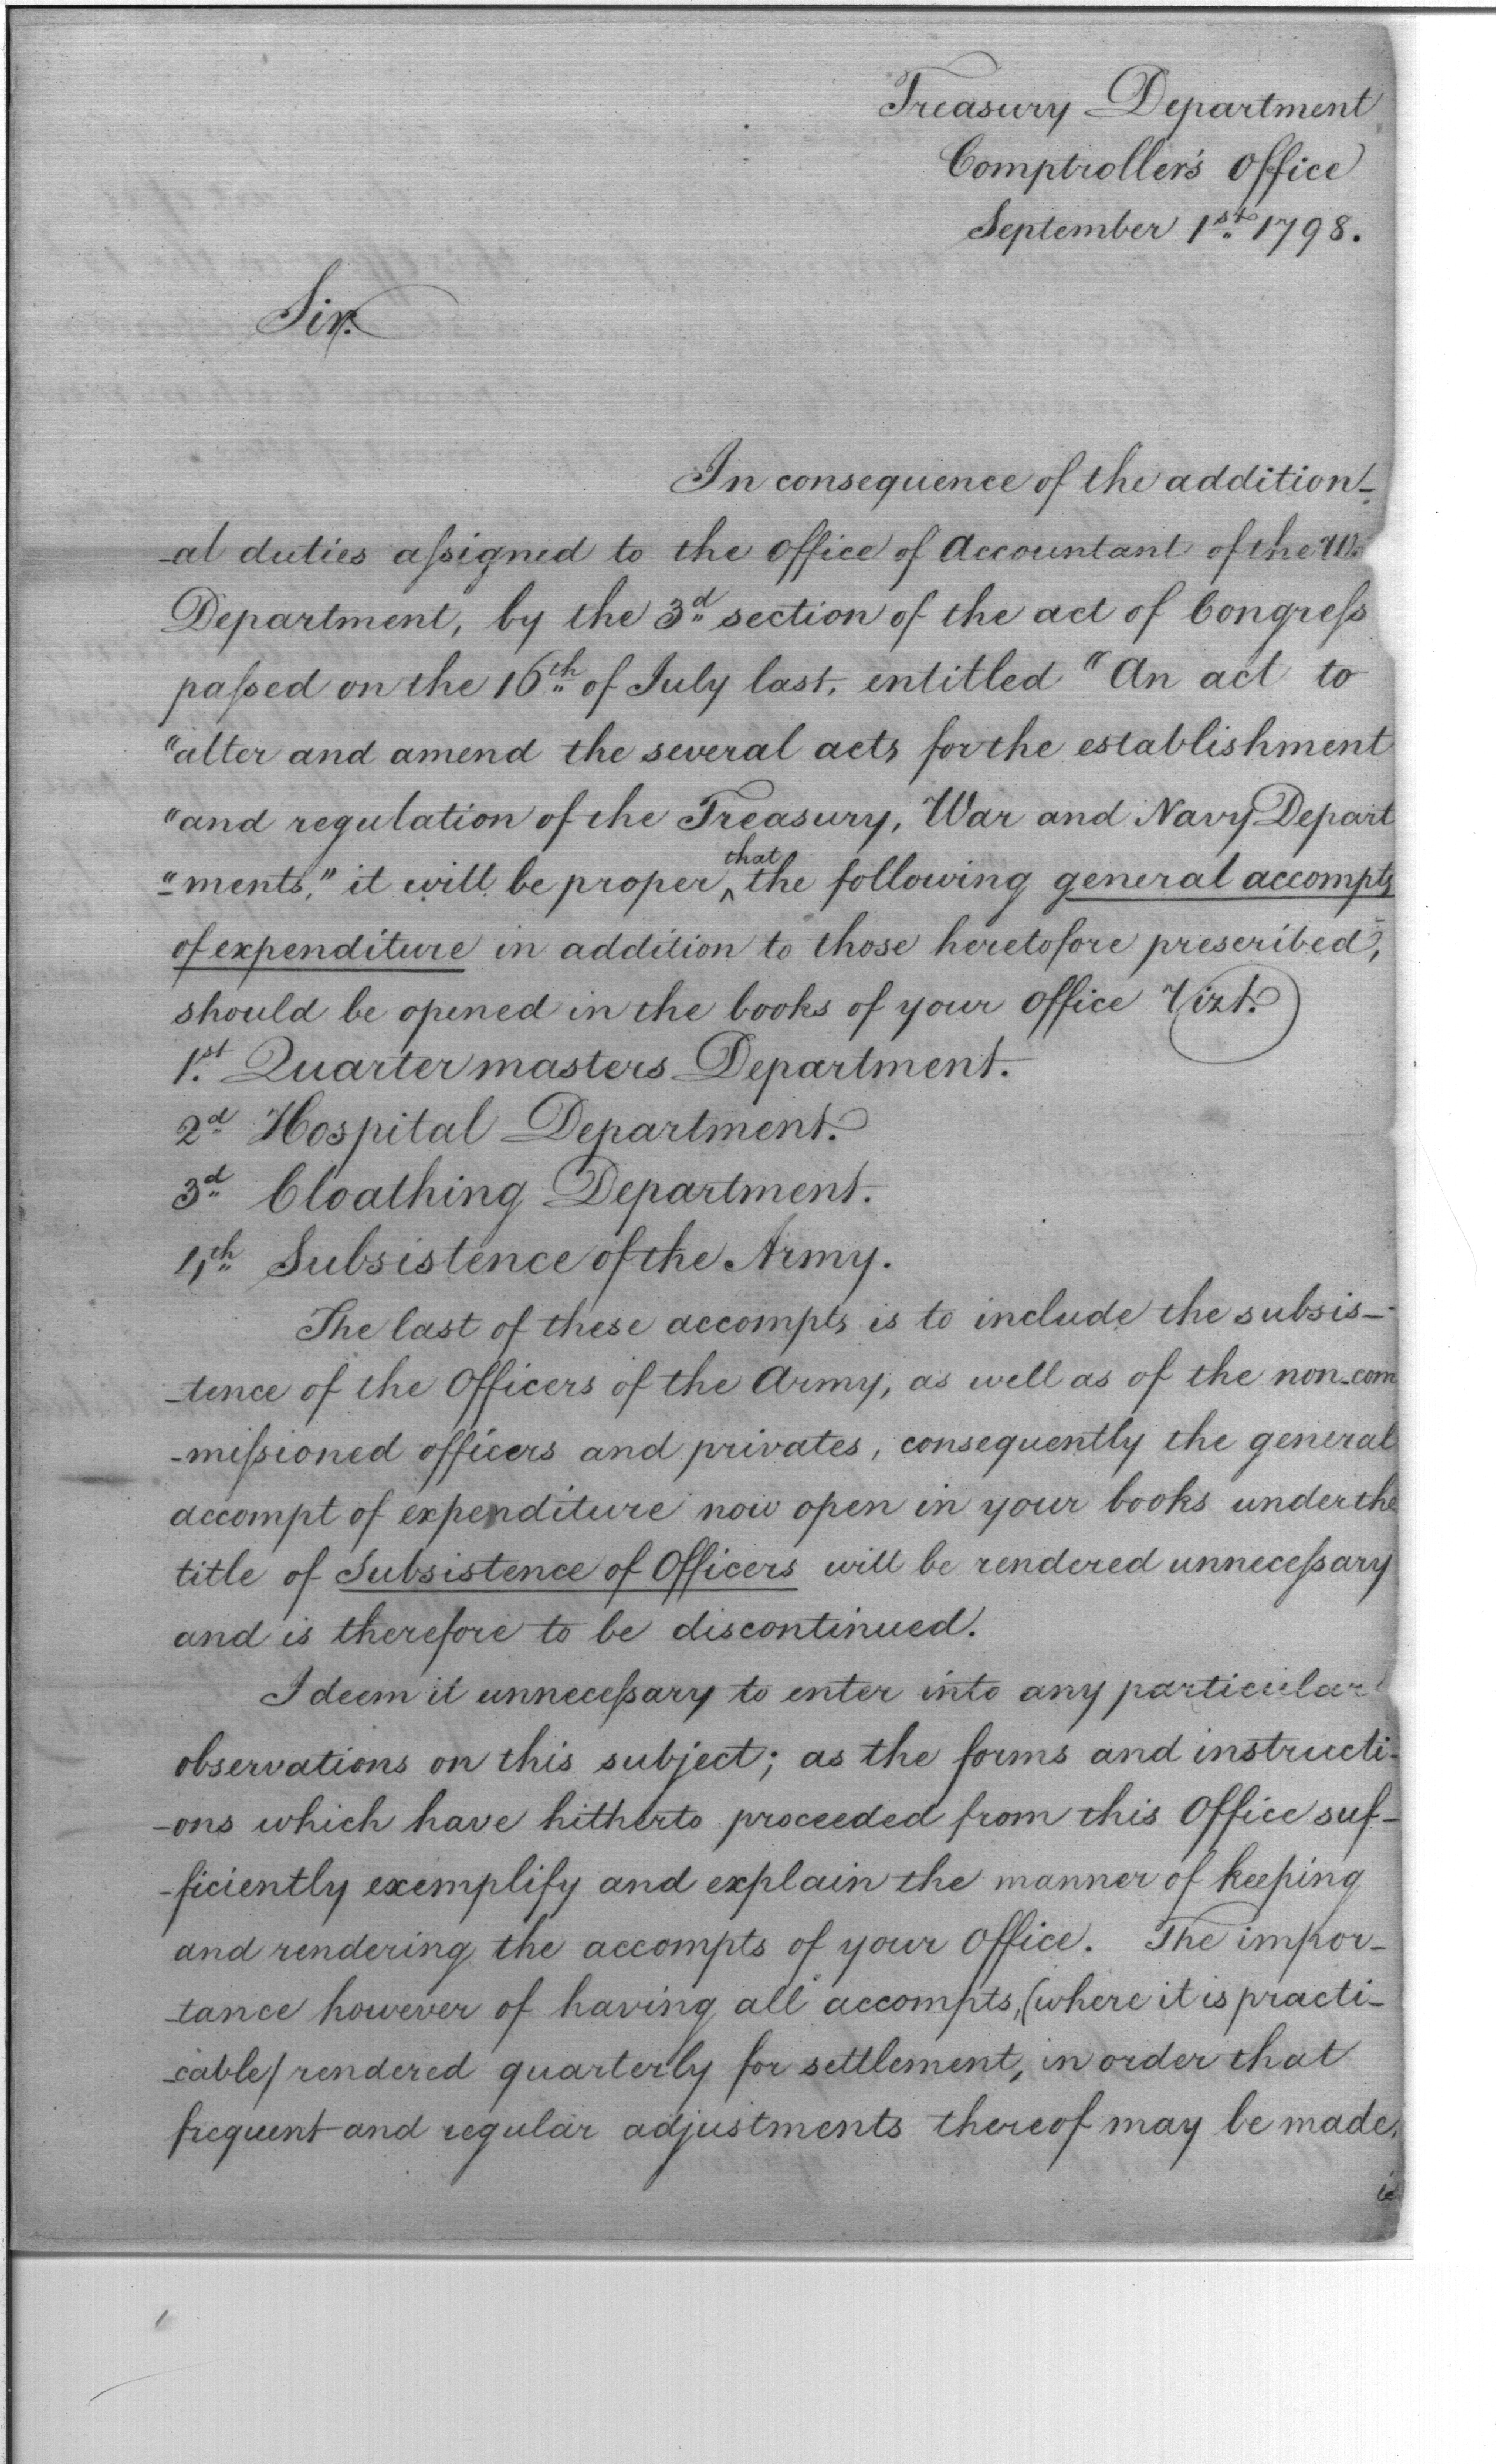 Treasury Department
Comptroller's Office
September 1st 1798.
Sir.
In consequence of the addition-
-al duties aſsigned to the Office of Accountant of the
Department, by the 3d section of the act of Congreſs
paſsed on the 16th of July last, entitled "An act to
"alter and amend the several acts for the establishment
"and regulation of the Treasury, War and Navy Depart
"ments," it will be proper that the following general accompts
of expenditure in addition to those heretofore prescribed,
should be opened in the books of your Office Vizt.
1st. Quartermasters Department.
2d Hospital Department.
3d Cloathing Department.
4th Subsistence of the Army.
The last of these accompts is to include the subsis-
-tence of the Officers of the Army, as well as of the non-com
-miſsioned officers and privates, consequently the general
accompt of expenditure now open in your books under the
title of Subsistence of Officers will be rendered unneceſsary
and is therefore to be discontinued.
I deem it unneceſsary to enter into any particular
observations on this subject; as the forms and instructi-
-ons which have hitherto proceeded from this Office suf-
-ficiently exemplify and explain the manner of keeping
and rendering the accompts of your Office. The impor-
-tance however of having all accompts, (where it is practi-
-cable) rendered quarterly for settlement, in order that
frequent and regular adjustments thereof may be made,
is